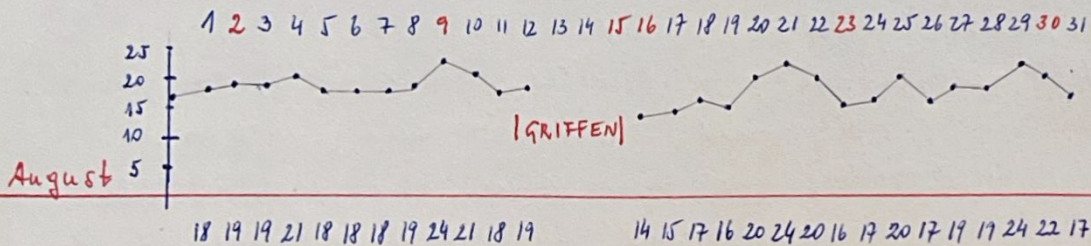 1 2 3 4 5 6 7 8 9 10 11 12 13 14 15 16 17 18 19 20 21 22 23 24 25 26 27 28 29 30 31
25
20
15
10
|GRIFFEN|
August 5
18 19 19 21 18 18 18 19 24 21 18 19 14 15 17 16 20 24 20 16 17 20 17 19 19 24 22 17